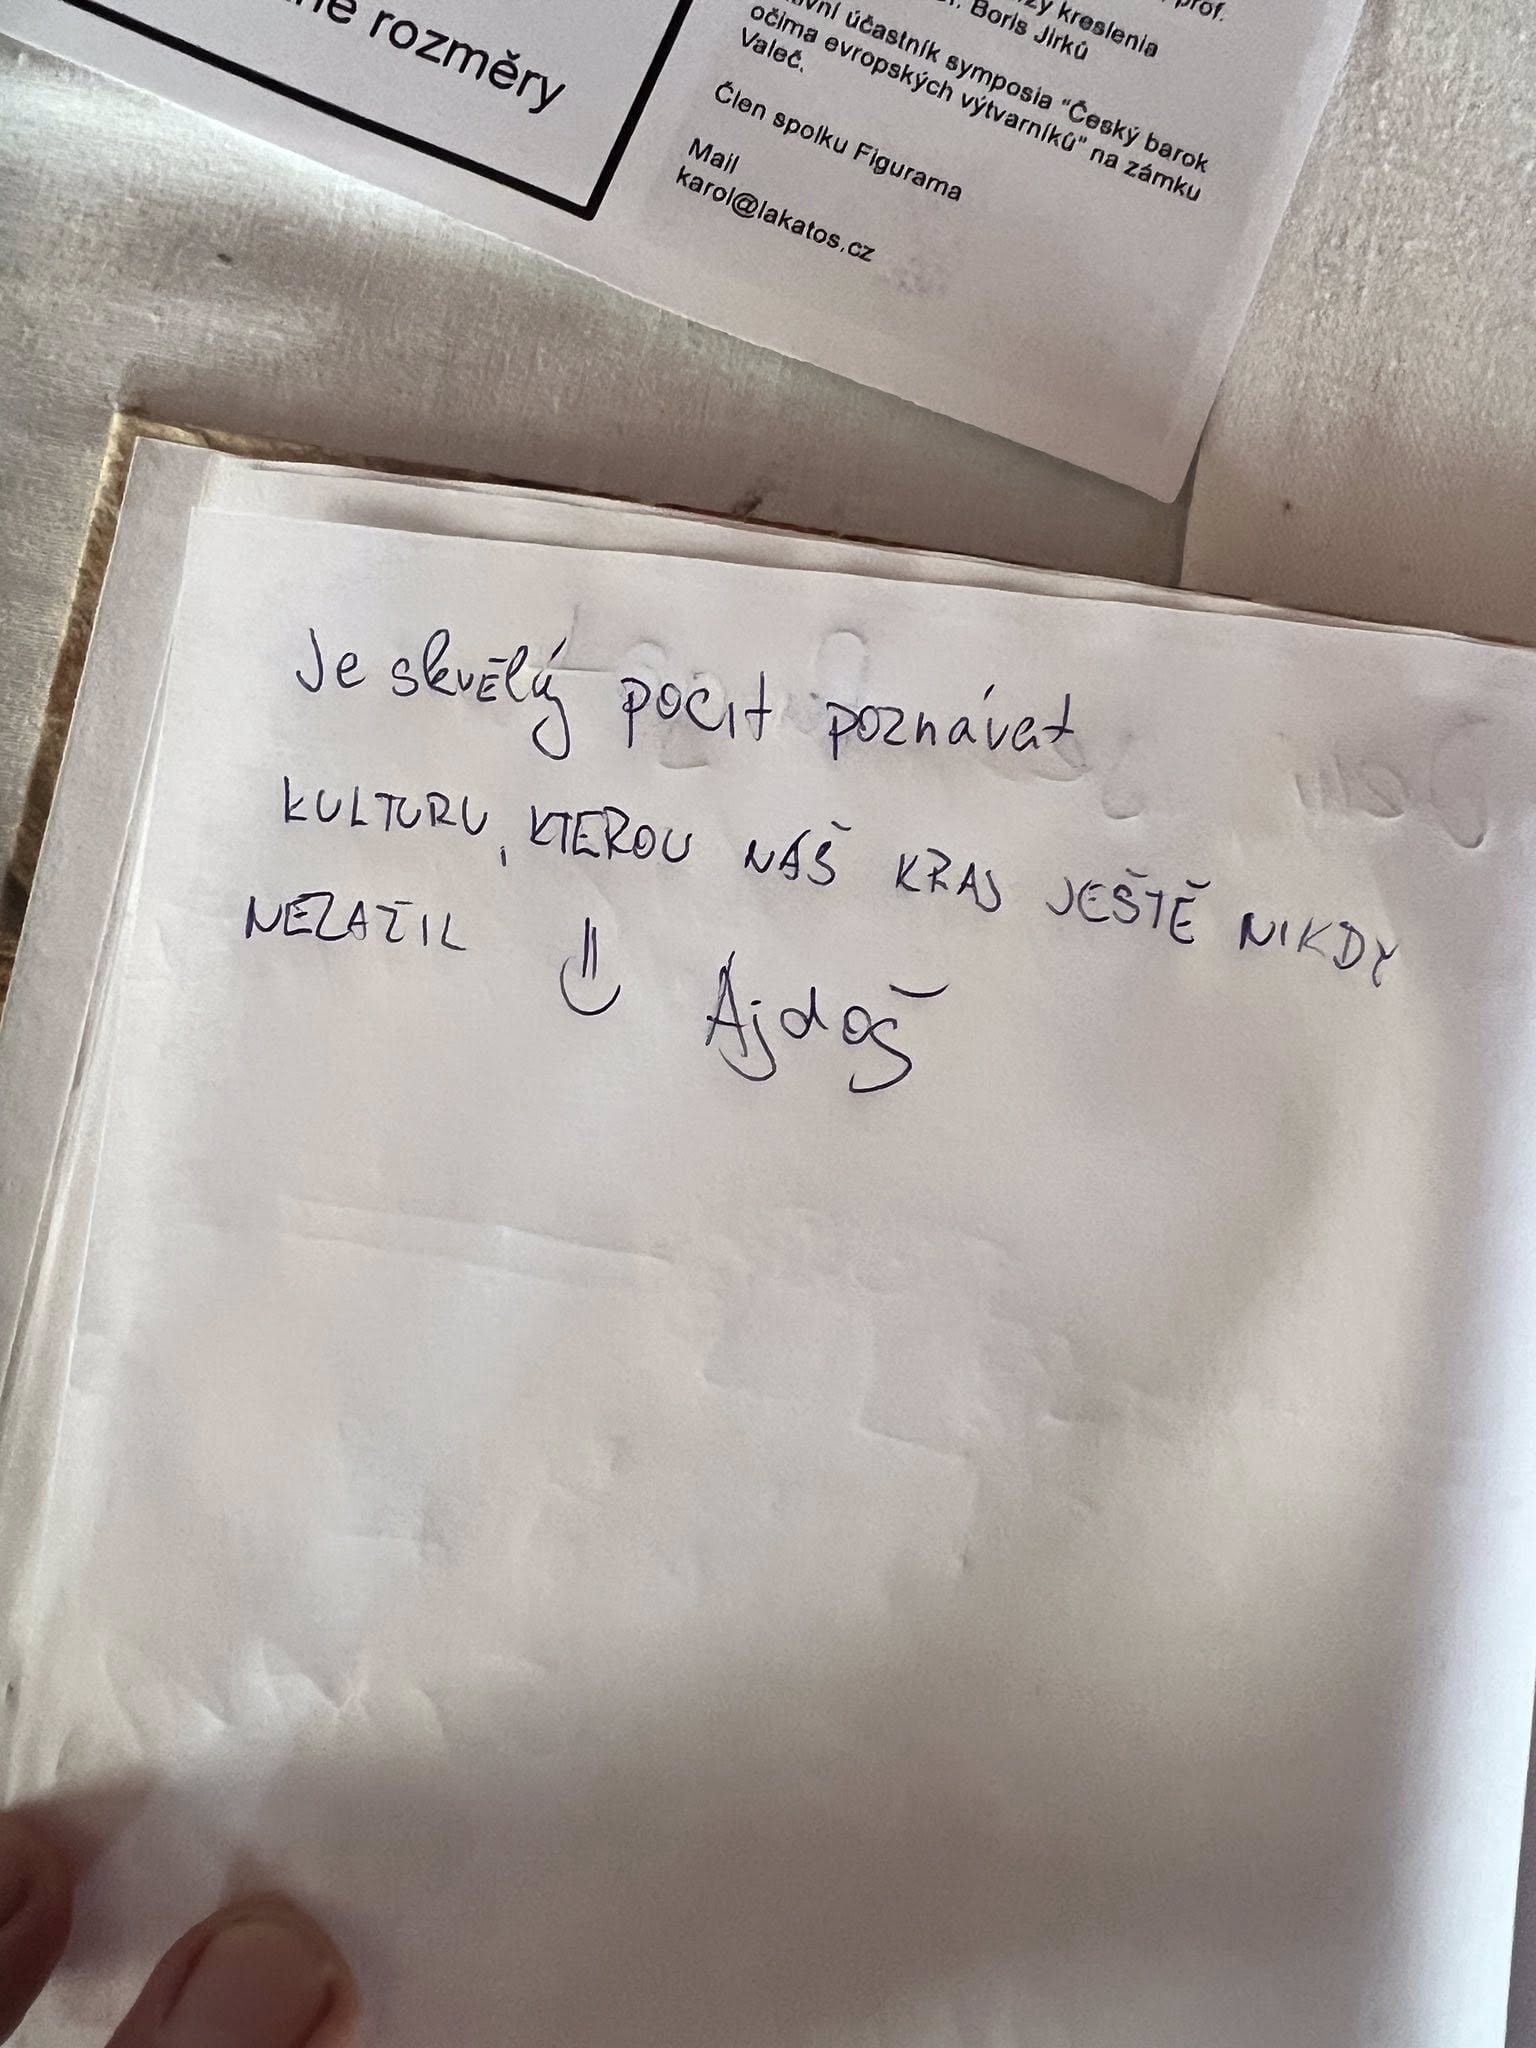 né rozměry
prof.
kreslenia
Boris Jirků
účastník symposia "Český barok
očima evropských výtvarníků" na zámku
Valeč.
Člen spolku Figurama
Mail
karol@lakatos.cz
Je skvělý pocit poznávat
KULTURU, KTEROU NÁŠ KRAJ JEŠTĚ NIKDY
NEZAŽIL =) Ájdoš